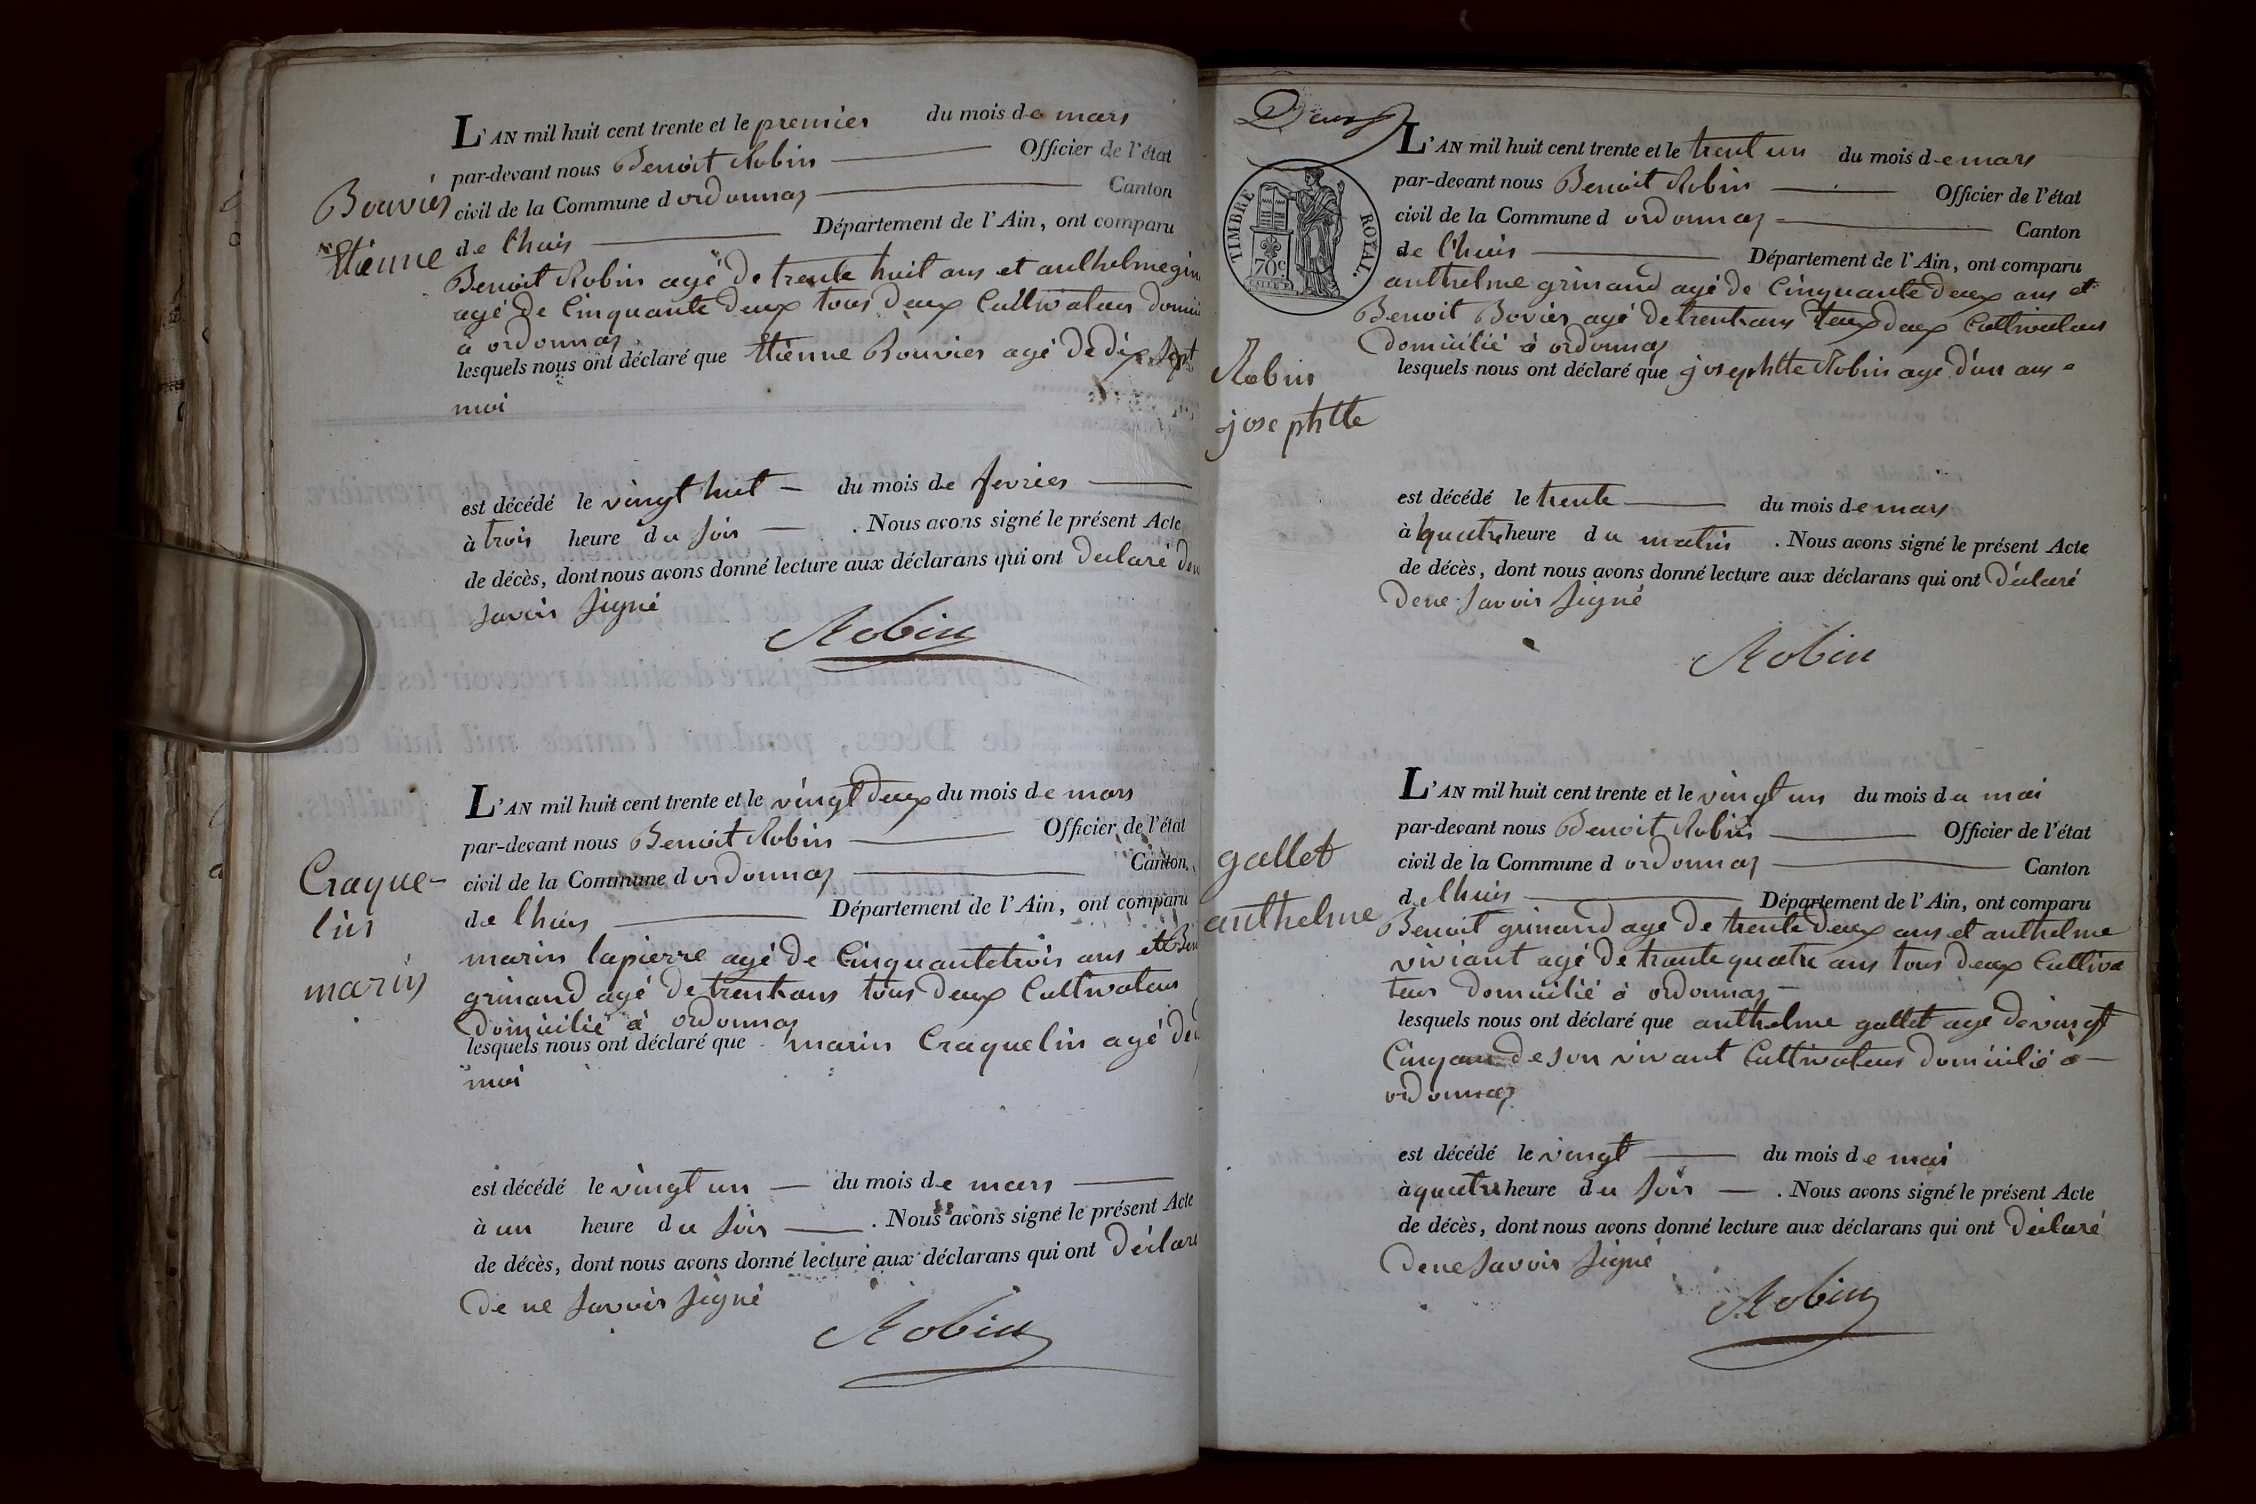 L'AN mil huit cent trente et le premier du mois de mars
par-devant nous Benoit Robin Officier de l'état
civil de la Commune d ordonnas Canton
de lhuis Département de l'Ain, ont comparu
Bouvier
Etienne
Benoit Robin agé de trente huit ans et anthelme
agé de Cinquante deux tous deux Cultivateur
à ordonnas
lesquels nous ont déclaré que Etienne Bouvier agé de dix sept
moi
est décédé le vingt huit du mois de fevrier
à trois heure du soir . Nous avons signé le présent Acte
de décès, dont nous avons donné lecture aux déclarans qui ont declaré
savoir signé
Robin
L'AN mil huit cent trente et le vingt deux du mois de mars
par-devant nous Benoit Robin Officier de l'état
civil de la Commune d ordonnas Canton
de lhuis Département de l'Ain, ont comparu
Craque-
lin
marin
marin lapierre agé de Cinquante trois ans et
grinand agé de trent ans tous deux Cultivateur
domicilié à ordonnas
lesquels nous ont déclaré que marin Craquelin agé
moi
est décédé le vingt un du mois de mars
à un heure du soir . Nous avons signé le présent Acte
de décès, dont nous avons donné lecture aux déclarans qui ont déclaré
de ne savoir signé
Robin
Deux
TIMBRE ROYAL.
70c.
L'AN mil huit cent trente et le trent un du mois de mars
par-devant nous Benoit Robin Officier de l'état
civil de la Commune d ordonnas Canton
de lhuis Département de l'Ain, ont comparu
anthelme grinand agé de Cinquante deux ans et
Benoit Bovier agé de trent ans deux Cultivateur
domicilié à ordonnas
lesquels nous ont déclaré que josephtte Robin agé d'un ans
Robin
josephtte
est décédé le trente du mois de mars
à quatre heure du matin . Nous avons signé le présent Acte
de décès, dont nous avons donné lecture aux déclarans qui ont déclaré
de ne savoir signé
Robin
L'AN mil huit cent trente et le vingt un du mois du mai
par-devant nous Benoit Robin Officier de l'état
civil de la Commune d ordonnas Canton
de lhuis Département de l'Ain, ont comparu
gallet
anthelme
Benoit grinand age de trente deux ans et anthelme
viviant agé de trante quatre ans tous deux Cultiva
teur domicilié à ordonnas
lesquels nous ont déclaré que anthelme gallet age de vingt
Cinq ans de son vivant Cultivateur domicilié à
ordonnas
est décédé le vingt du mois de mai
à quatre heure du soir . Nous avons signé le présent Acte
de décès, dont nous avons donné lecture aux déclarans qui ont déclaré
de ne savoir signé
Robin